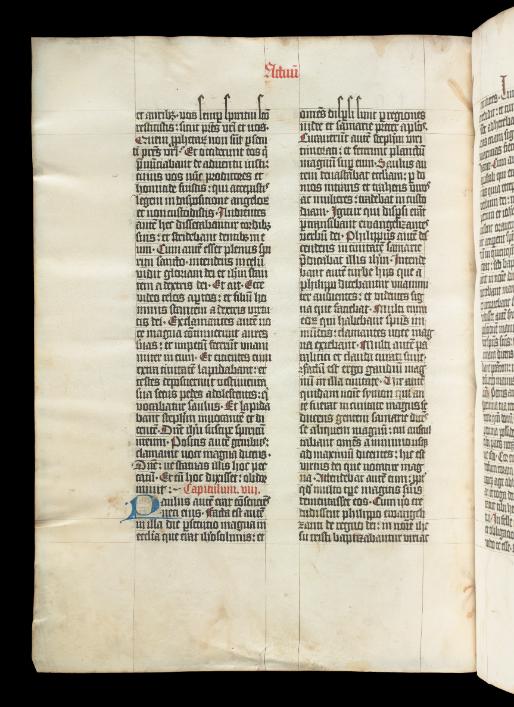 Actuū
et auribꝫ · vos semꝑ spiritui scō
restitistis: sicut pr̄es vr̄i et vos ·
Quem ꝓphetaꝝ non sūt ꝑsecu
ti pr̄es vr̄i · Et occiderunt eos q̄
p̄nūciabant de aduentu iusti:
cuius vos nūc ꝓditores et
homicide fuistis: qui accepistis
legem in dispositione angeloꝝ
et non custodistis · Audientes
autē hec dissecabantur cordibꝫ
suis: et stridebant dentibꝫ in e
um · Cum autē esset plenus spi
ritu sancto · intendens in celū
vidit gloriam dei et ihm̄ stan
tem a dextris dei · Et ait · Ecce
video celos aptos: et filiū ho
minis stantem a dextris virtu
tis dei · Exclamantes autē uo
ce magna continuerunt aures
suas: et impetū fecerūt vnani
miter in eum · Et eicientes eum
extra ciuitatē lapidabant: et
testes deposuerunt vestimenta
sua secus pedes adolescentis: q̄
vocabatur saulus · Et lapida
bant stephm̄ inuocantē et di
centē · Dn̄e ihū suscipe spiritū
meum · Positis autē genibꝫ:
clamauit uoce magna dicens ·
Dn̄e: ne statuas illis hoc pec
catū · Et cū hoc dixisset: obdor
miuit: · Capitulum · viij ·
Saulus autē erat cōsenciēs
neci eius · Facta est autē
in illa die ꝑsecutio magna in
ecclīa que erat ihrosolimis: et
omēs dispersi sunt ꝑ regiones
iudee et samarie p̄ter aplos ·
Curauerūt autē stephm̄ viri
timorati: et fecerunt planctū
magnū suꝑ eum · Saulus au
tem deuastabat ecclīam: ꝑ do
mos intrans et trahens viros
ac mulieres: tradebat in custo
diam · Igitur qui dispersi erāt
ꝑtransibant euangelizantes
verbū dei · Philippus autē de
scendens in ciuitatē samarie
p̄dicabat illis xp̄m · Intende
bant autē turbe hijs que a
philippo dicebantur vnanimi
ter audientes: et videntes sig
na que faciebat · Multi enim
eoꝝ qui habebant spūs im
mūdos: clamantes uoce mag
na exiebant · Multi autē pa
ralitici et claudi curati sunt ·
Factū est ergo gaudiū mag
nū in illa ciuitate · Vir autē
quidam noīe symon qui an
te fuerat in ciuitate magus se
ducens gentem samarie dicēs
se aliquem magnū: cui auscul
tabant omēs a minimo usqꝫ
ad maximū dicentes: hic est
virtus dei que vocatur mag
na · Attendebāt autē eum: ꝓpt
qd̓ multo tꝑe magijs suis
dementasset eos · Cum uo cre
didissent philippo euangeli
zanti de regno dei: in noīe ihe
su cristi baptizabantur viri ac